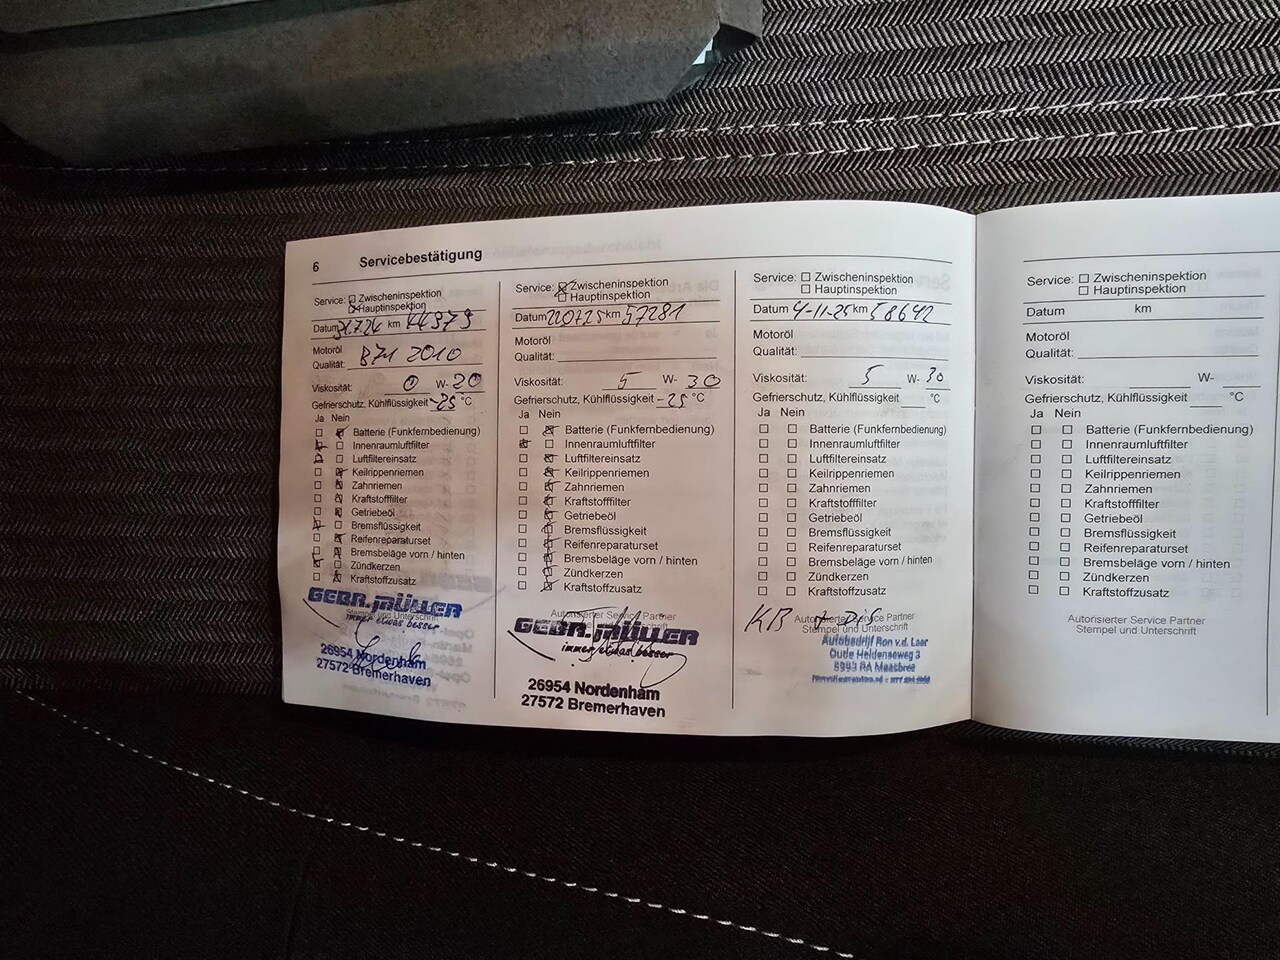 6 Servicebestätigung
Service: Zwischeninspektion
Hauptinspektion
Datum km 44979
Motoröl
Qualität: B71 2010
Viskosität: 0 W- 20
Gefrierschutz, Kühlflüssigkeit -25 °C
Ja Nein
Batterie (Funkfernbedienung)
Innenraumluftfilter
Luftfiltereinsatz
Keilrippenriemen
Zahnriemen
Kraftstofffilter
Getriebeöl
Bremsflüssigkeit
Reifenreparaturset
Bremsbeläge vorn / hinten
Zündkerzen
Kraftstoffzusatz
GEBR. MÜLLER
Stempel und Unterschrift
immer etwas besser
26954 Nordenham
27572 Bremerhaven
Service: Zwischeninspektion
Hauptinspektion
Datum km 57281
Motoröl
Qualität:
Viskosität: 5 W- 30
Gefrierschutz, Kühlflüssigkeit -25 °C
Ja Nein
Batterie (Funkfernbedienung)
Innenraumluftfilter
Luftfiltereinsatz
Keilrippenriemen
Zahnriemen
Kraftstofffilter
Getriebeöl
Bremsflüssigkeit
Reifenreparaturset
Bremsbeläge vorn / hinten
Zündkerzen
Kraftstoffzusatz
Autorisierter Service Partner
GEBR. MÜLLER
immer etwas besser
26954 Nordenham
27572 Bremerhaven
Service: Zwischeninspektion
Hauptinspektion
Datum 4-11-25 km 58642
Motoröl
Qualität:
Viskosität: 5 W- 30
Gefrierschutz, Kühlflüssigkeit °C
Ja Nein
Batterie (Funkfernbedienung)
Innenraumluftfilter
Luftfiltereinsatz
Keilrippenriemen
Zahnriemen
Kraftstofffilter
Getriebeöl
Bremsflüssigkeit
Reifenreparaturset
Bremsbeläge vorn / hinten
Zündkerzen
Kraftstoffzusatz
Autorisierter Service Partner
Stempel und Unterschrift
Autobedrijf Ron v.d. Laar
Oude Heldenseweg 3
5993 RA Maasbree
Service: Zwischeninspektion
Hauptinspektion
Datum km
Motoröl
Qualität:
Viskosität: W-
Gefrierschutz, Kühlflüssigkeit °C
Ja Nein
Batterie (Funkfernbedienung)
Innenraumluftfilter
Luftfiltereinsatz
Keilrippenriemen
Zahnriemen
Kraftstofffilter
Getriebeöl
Bremsflüssigkeit
Reifenreparaturset
Bremsbeläge vorn / hinten
Zündkerzen
Kraftstoffzusatz
Autorisierter Service Partner
Stempel und Unterschrift